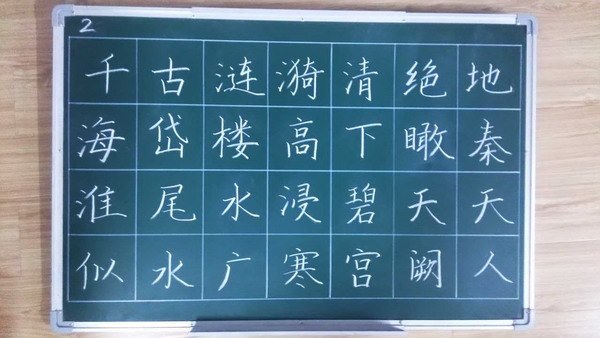 2
千古涟漪清绝地
海岱楼高下瞰秦
淮尾水浸碧天天
似水广寒宫阙人